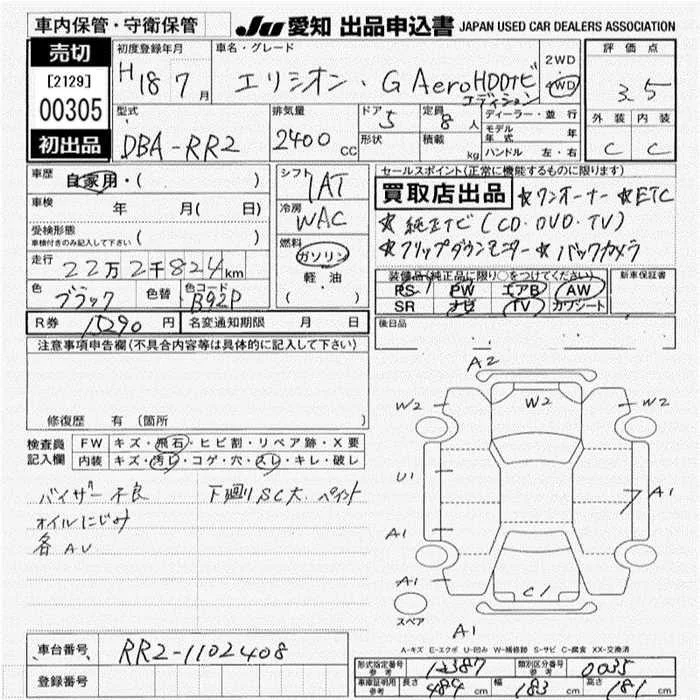 車内保管・守衛保管
JU 愛知 出品申込書 JAPAN USED CAR DEALERS ASSOCIATION
売切
[2129]
00305
初出品
初度登録年月
H18 7月
車名・グレード
エリシオン・G AeroHDDナビ
エディション
2WD
4WD
評価点
3.5
外装 内装
C C
型式
DBA-RR2
排気量
2400 CC
ドア 5
形状
定員 8人
積載 kg
ディーラー・並行
モデル年式 年
ハンドル 左・右
車歴 自家用・( )
車検 年 月( 日)
受検形態
車検付きのみ記入して下さい ( )
走行 22万2千824km
色 ブラック 色替 色コード B92P
シフト 7AT
冷房 WAC
燃料
ガソリン
軽油
( )
セールスポイント(正常に機能するものに限ります)
買取店出品 ☆ワンオーナー ☆ETC
☆純正ナビ(CD.DVD.TV)
☆フリップダウンモニター ☆バックカメラ
装備品(純正品に限り○をつけてください)
RS PW エアB AW
SR ナビ TV カワシート
新車保証書
後日品
R券 円
名変通知期限 月 日
注意事項申告欄(不具合内容等は具体的に記入して下さい)
修復歴 有 (箇所 )
検査員
記入欄
FW キズ・飛石・ヒビ割・リペア跡・X要
内装 キズ・汚レ・コゲ・穴・スレ・キレ・破レ
バイザー不良 下廻りSC大.ペイント
オイルにじみ
各AU
A2
W2 W2 W2
U1
A1
A1
A1
C1
スペア
A1
A-キズ E-エクボ U-凹み W-補修跡 S-サビ C-腐食 XX-交換済
車台番号 RR2-1102408
登録番号
形式指定番号
参考
類別区分番号
参考
0035
車庫証明用
参考
長さ 484 cm 幅 183 cm 高さ 181 cm